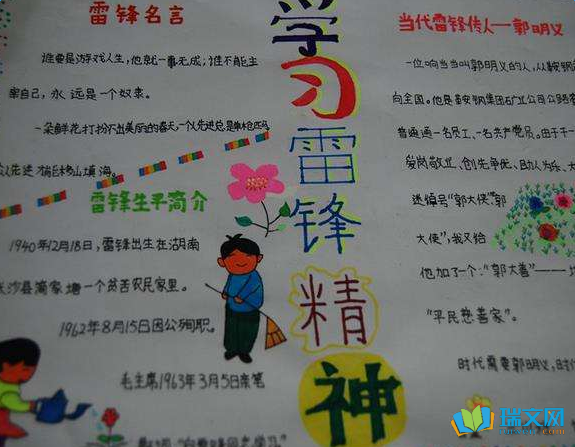 雷锋名言
谁要是游戏人生，他就一事无成；谁不能主
宰自己，永远是一个奴隶。
一朵鲜花打扮不出美丽的春天，一个人先进总是单枪匹马
众人先进才能移山填海。
雷锋生平简介
1940年12月18日，雷锋出生在湖南
长沙县简家塘一个贫苦农民家里。
1962年8月15日因公殉职。
毛主席1963年3月5日亲笔
"向雷锋同志学习"
学习雷锋精神
当代雷锋传人——郭明义
一位响当当叫郭明义的人，从鞍钢
向全国。他是鞍钢集团矿业公司公路
普通通一名员工、一名共产党员。由于
爱岗敬业、创先争优、助人为乐、
送编号"郭大侠"郭
大侠"，我又给
他加了一个："郭大善"——
"平民慈善家"。
时代需要郭明义，时
瑞文网